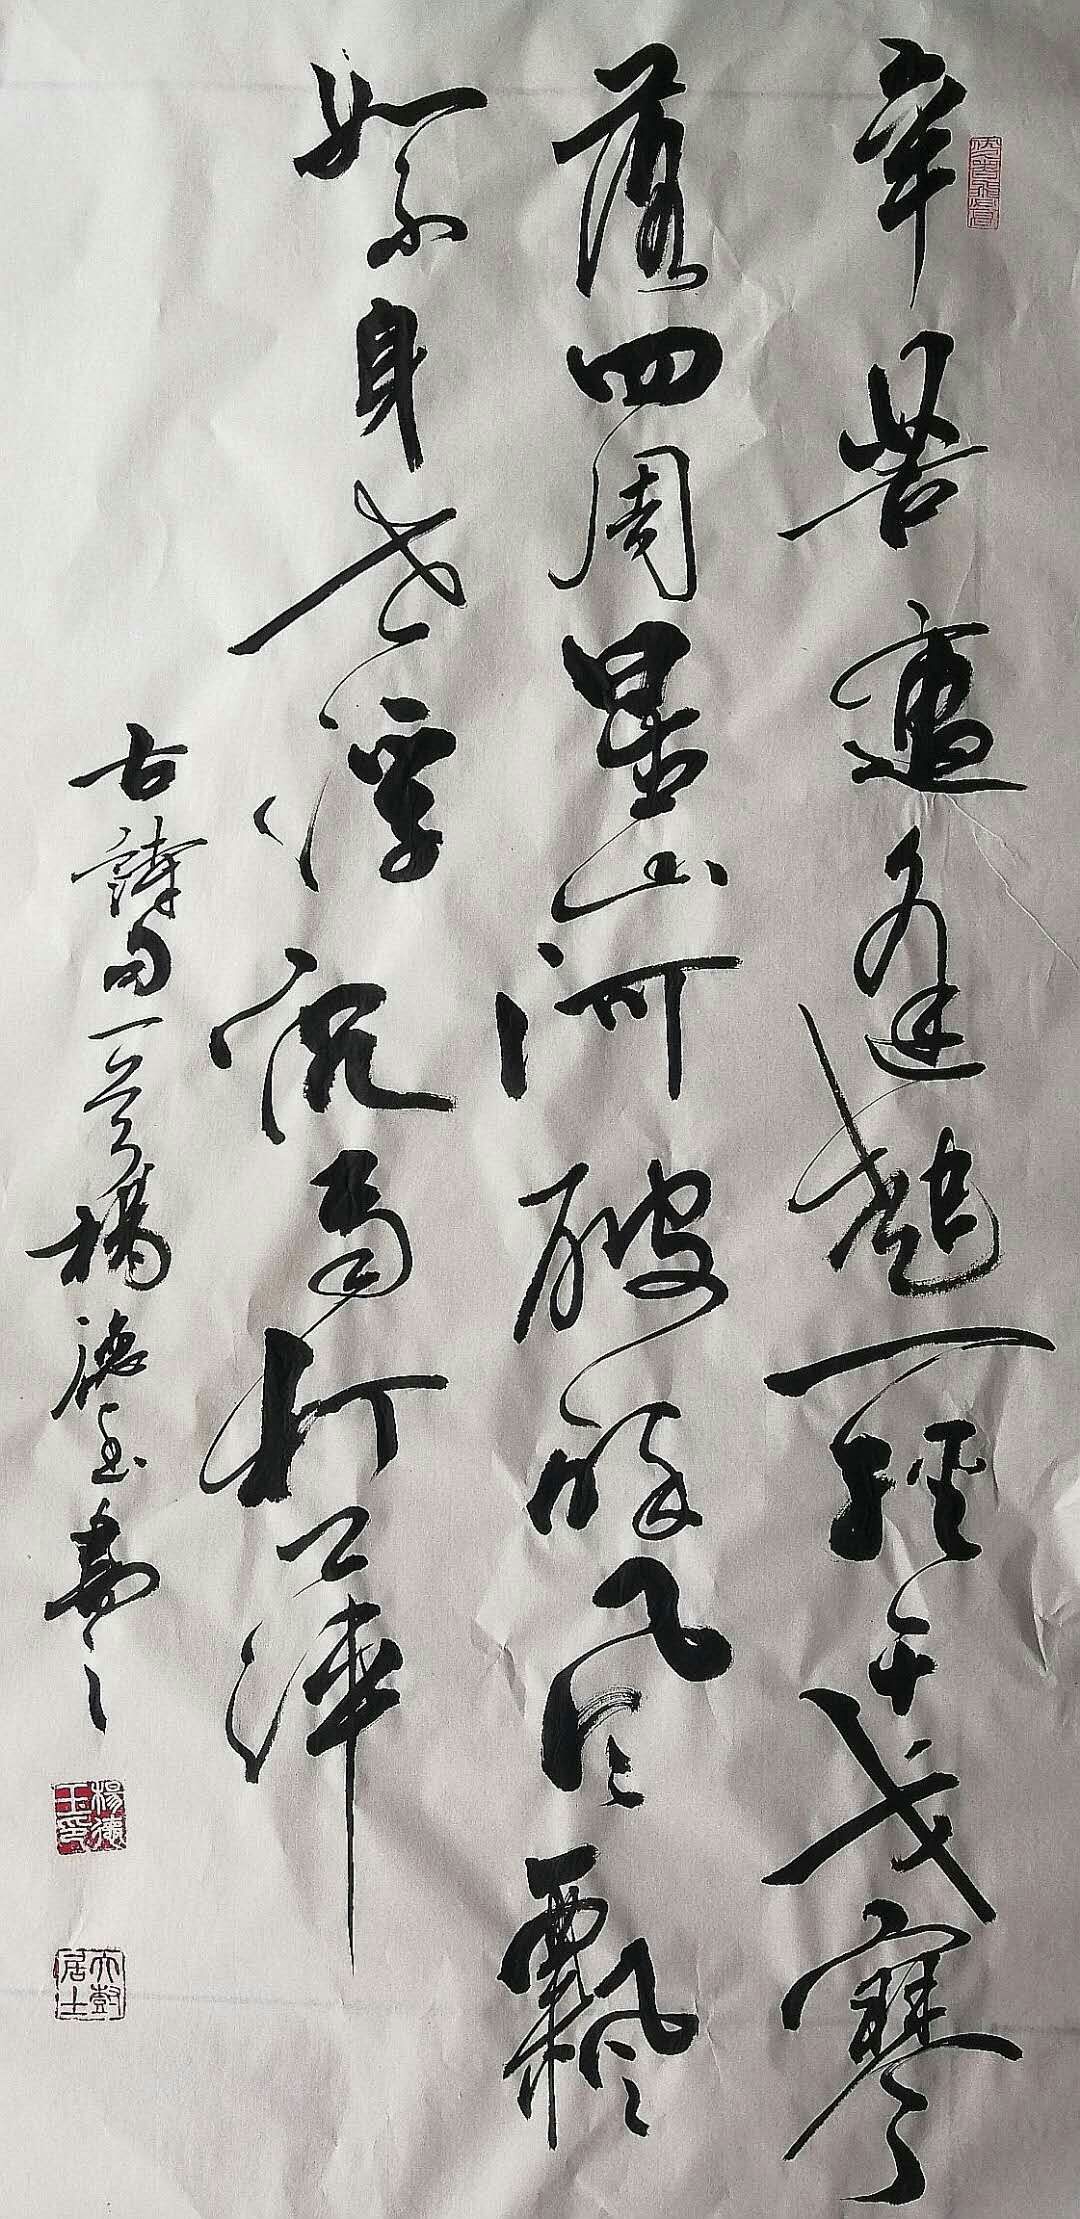 辛苦遭逢起一經干戈寥
落四周星山河破碎風飄
絮身世浮沉雨打萍
古詩句一首楊德玉書之
楊德玉印
居士